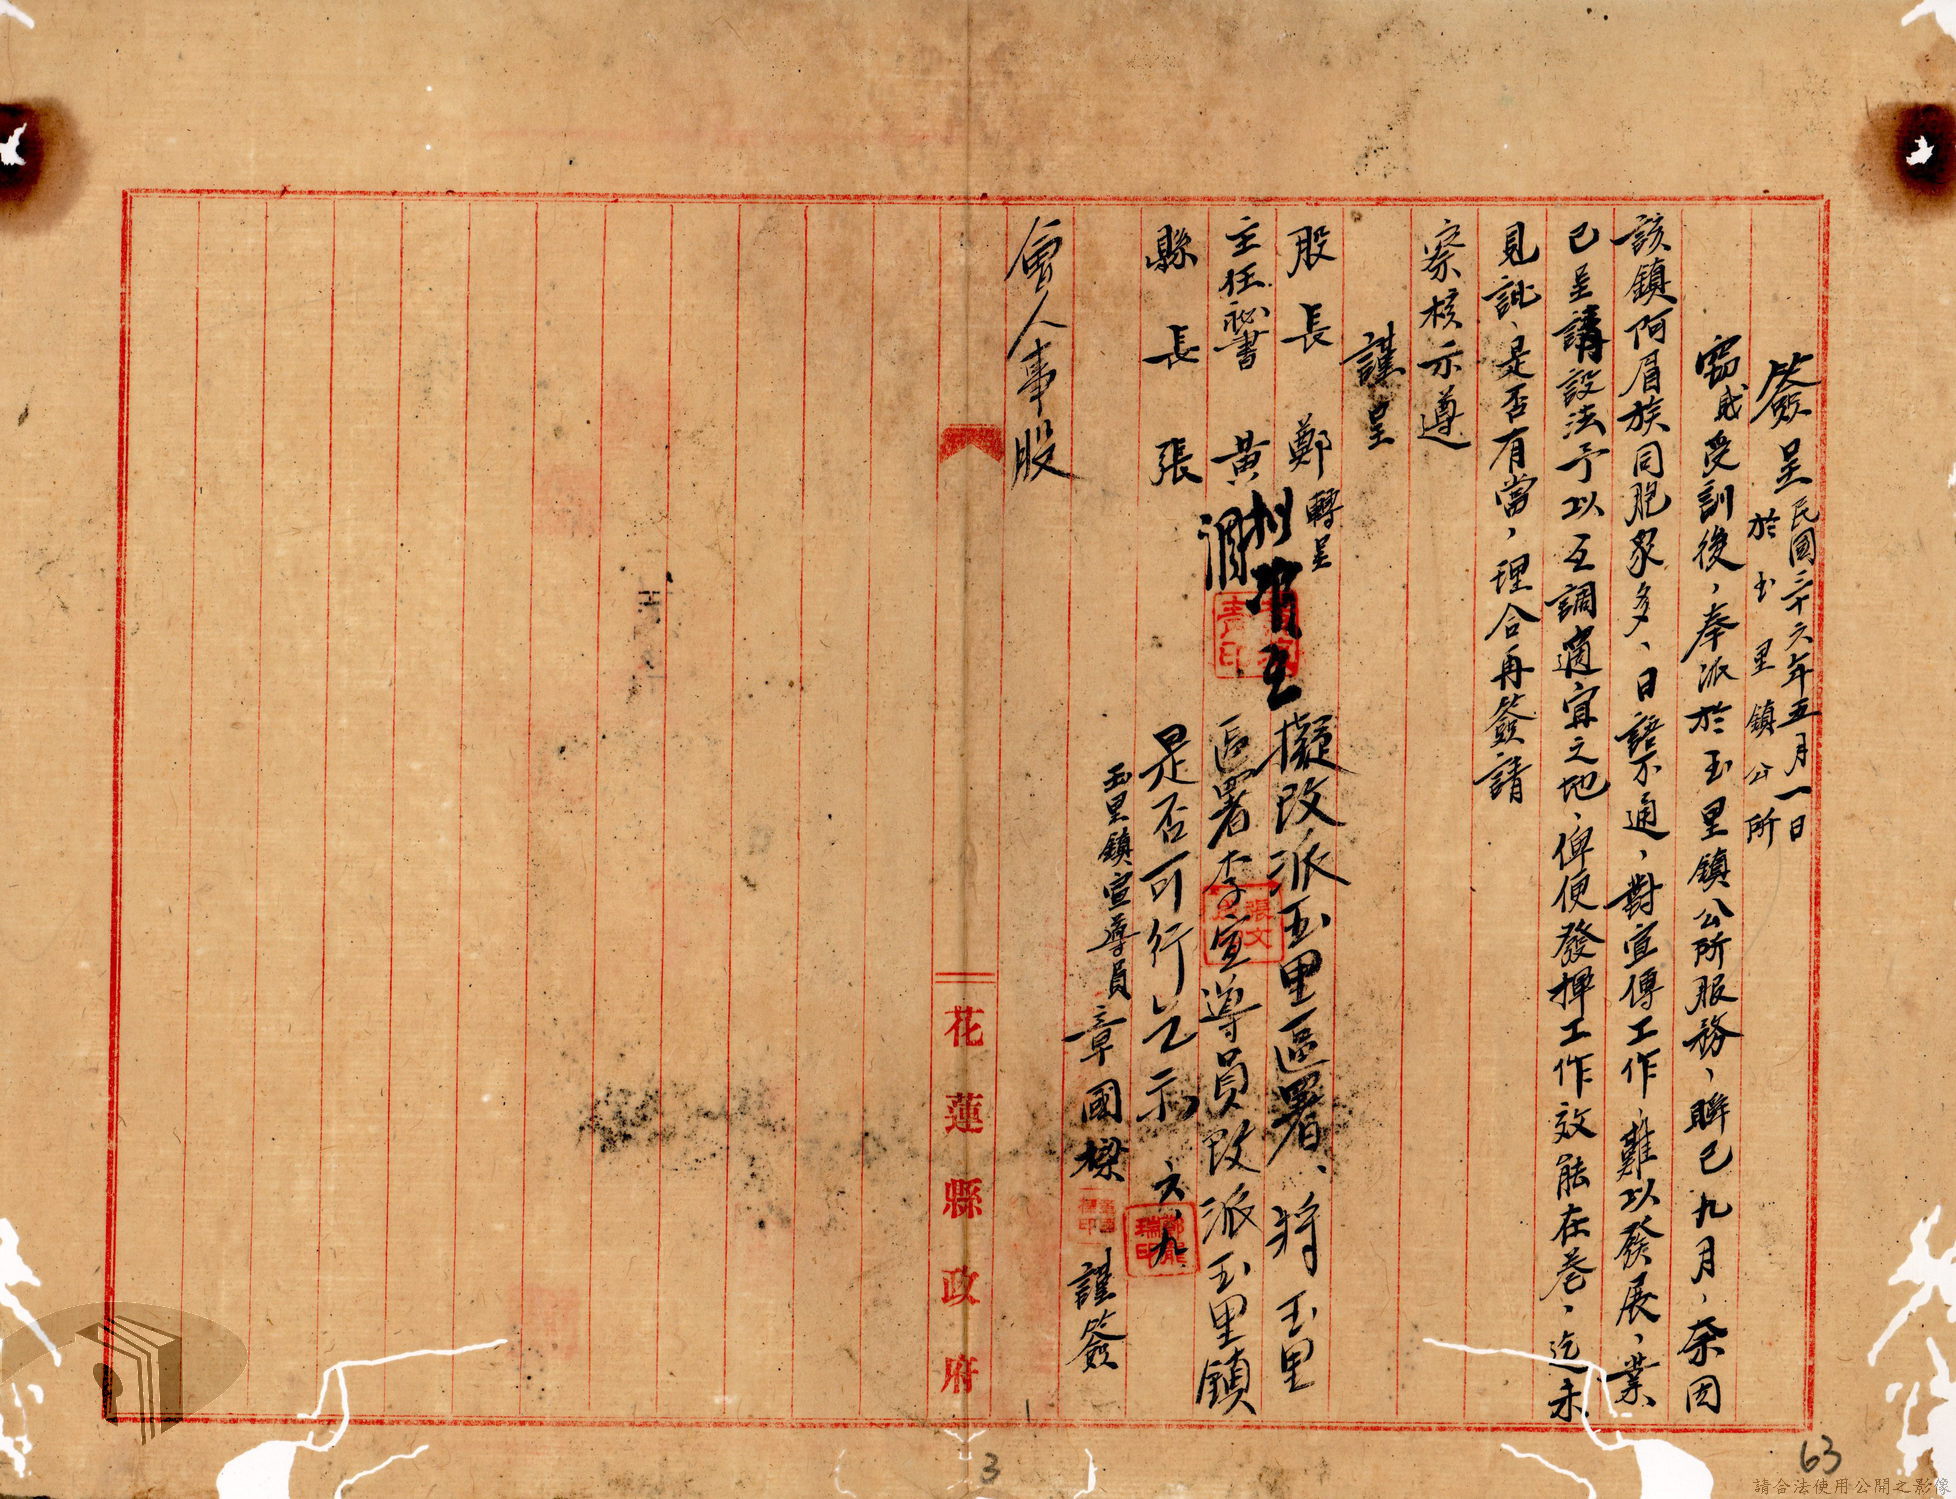 簽呈 民國三十六年五月一日
於玉里鎮公所
竊職受訓後，奉派於玉里鎮公所服務，瞬已九月，奈因
該鎮阿眉族同胞眾多、日語不通，對宣傳工作，難以發展，業
已呈請設法予以互調適宜之地，俾便發揮工作效能在卷，迄未
見訛，是否有當，理合再簽請
察核示遵
謹呈
股長 鄭 轉呈
主任秘書 黃
縣長 張
擬改派玉里區署、將玉里
區署李宣導員改派玉里鎮
是否可行乞示 六.九
玉里鎮宣導員章國樑 謹簽
會人事股
花蓮縣政府
3
63
請合法使用公開之影像